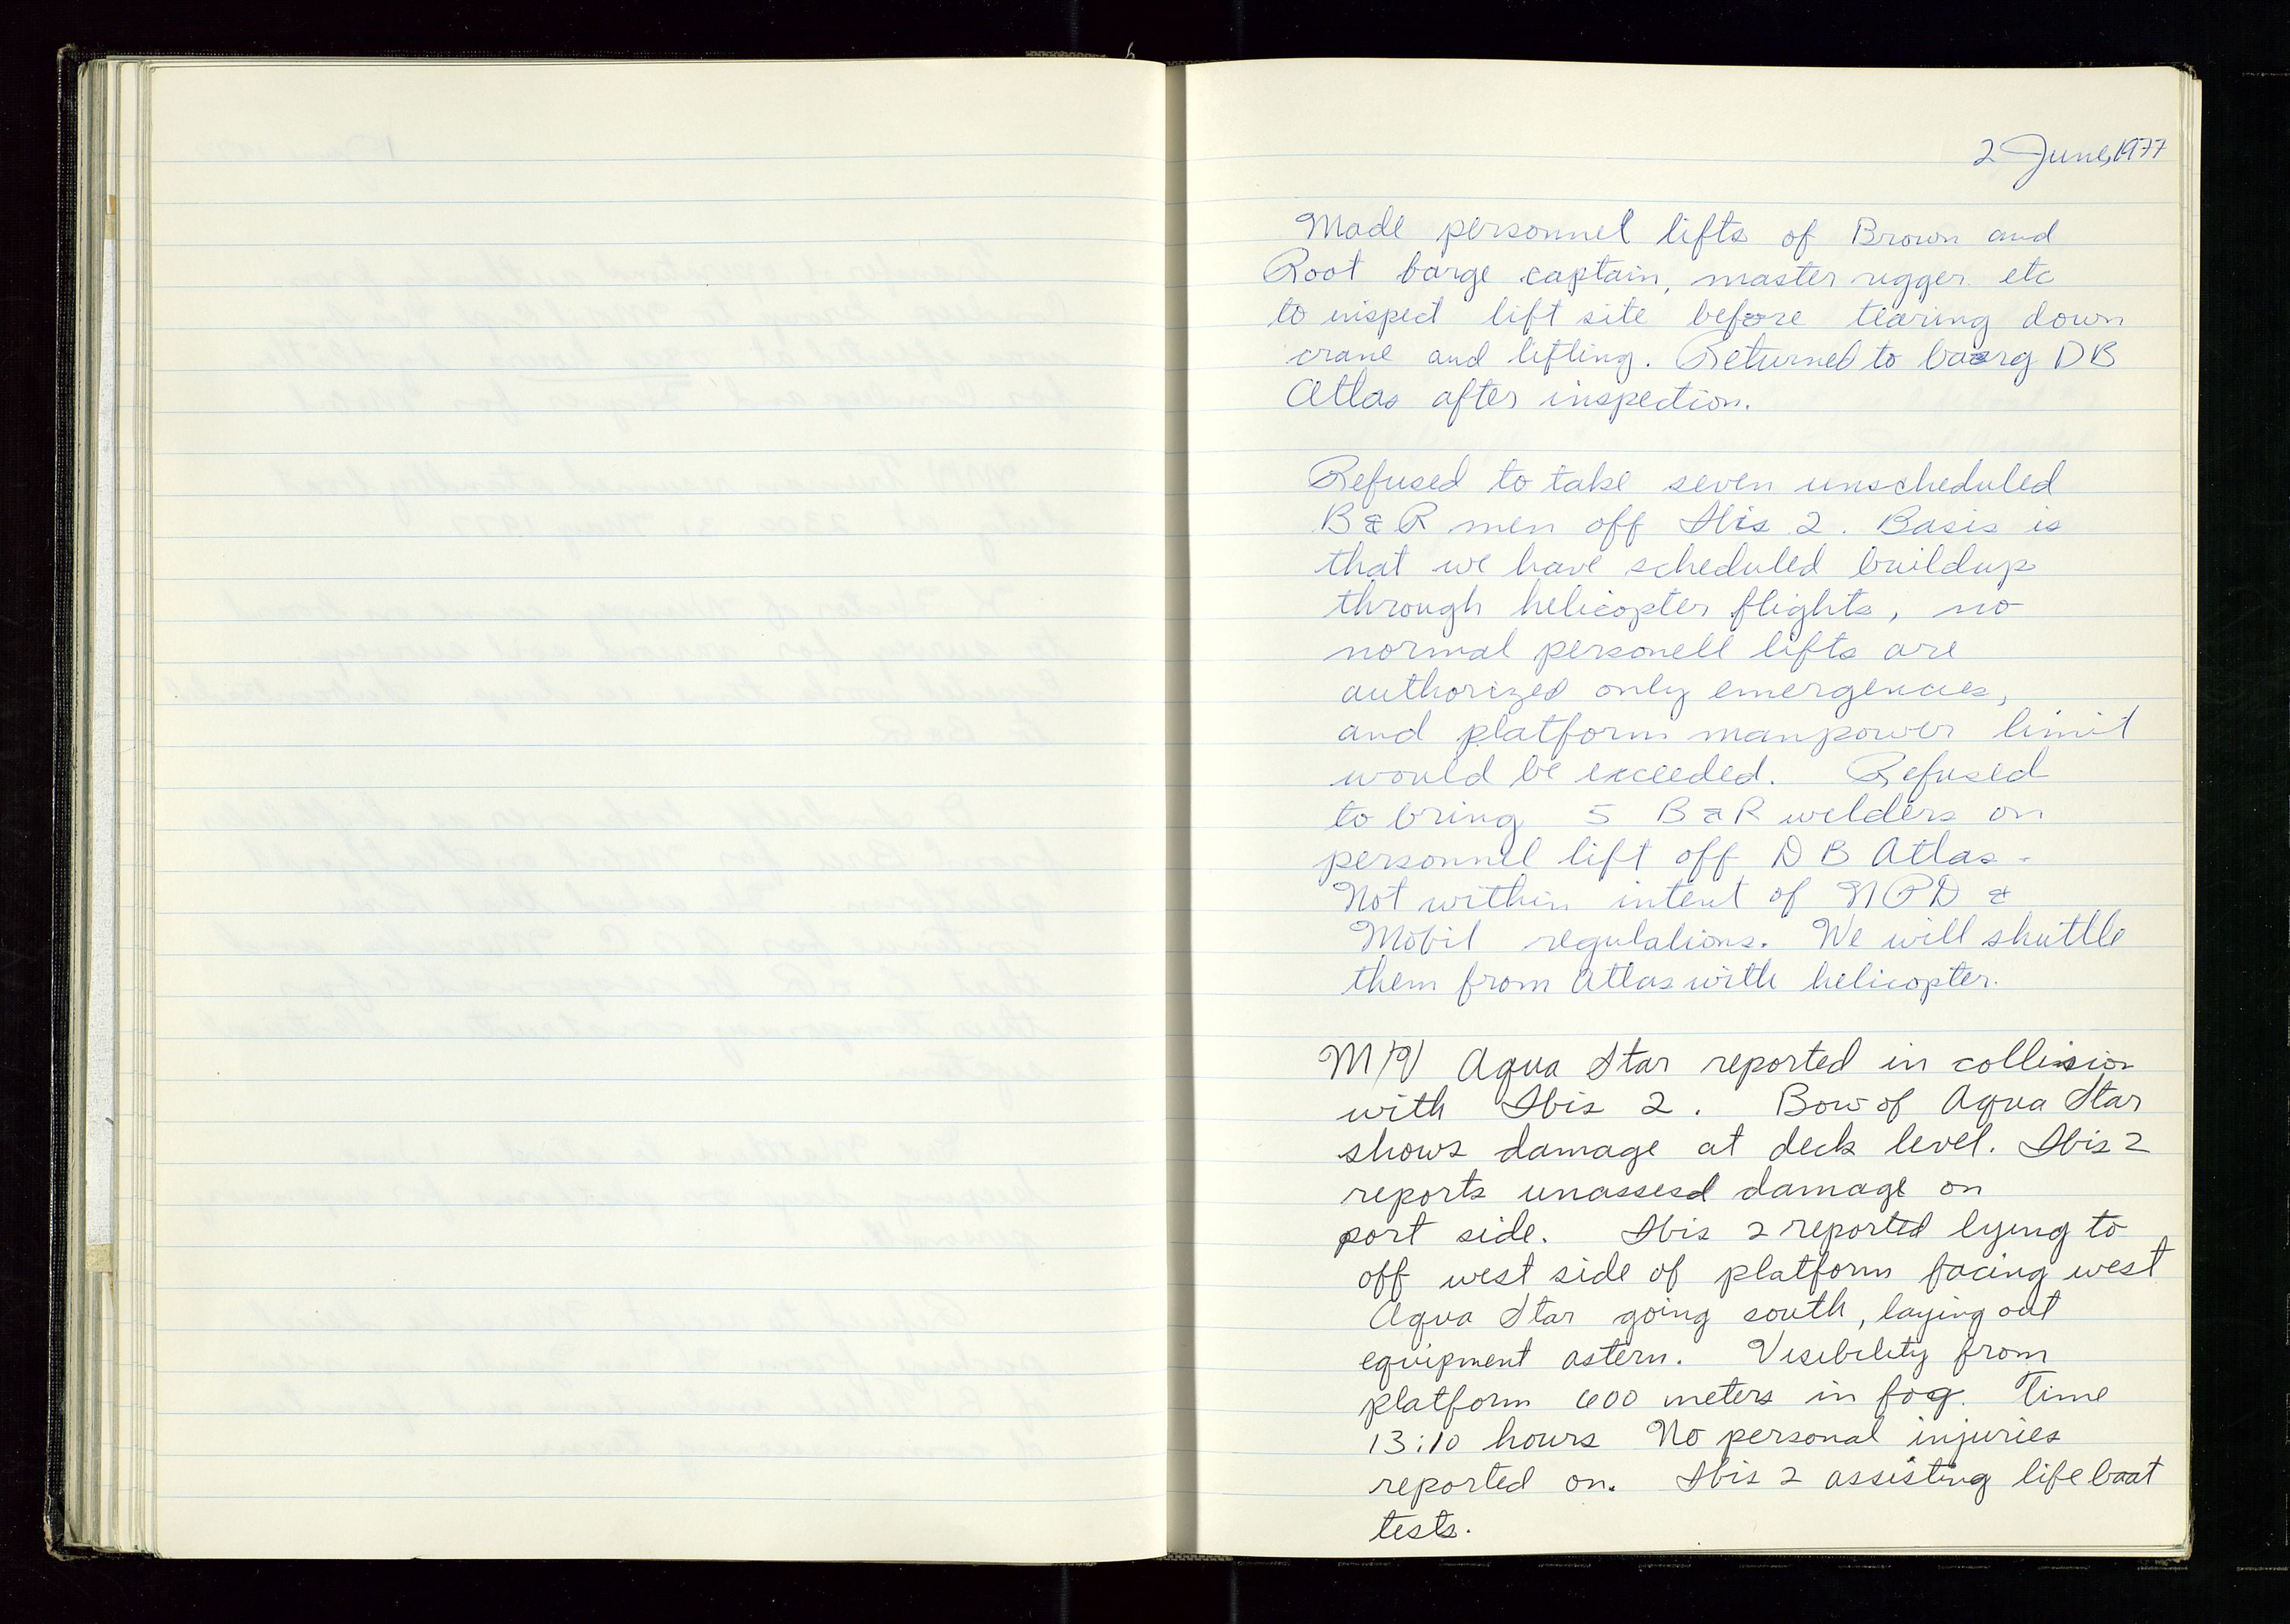 2 June, 1977
Made personnel lifts of Brown and
Root barge captain, master rigger etc
to inspect lift site before tearing down
crane and lifting. Returned to baarg DB
Atlas after inspection.
Refused to take seven unscheduled
B & R men off Ibis 2. Basis is
that we have scheduled buildup
through helicopter flights, no
normal personell lifts are
authorized only emergencies,
and platform manpower limit
would be exceeded. Refused
to bring 5 B & R welders on
personnel lift off D B Atlas.
Not within intent of NPD &
Mobil regulations. We will shuttle
them from Atlas with helicopter.
M/V Aqua Star reported in collision
with Ibis 2. Bow of Aqua Star
shows damage at deck level. Ibis 2
reports unassesd damage on
port side. Ibis 2 reported lying to
off west side of platform facing west
Aqua Star going south, laying out
equipment astern. Visibility from
platform 600 meters in fog. Time
13:10 hours No personal injuries
reported on. Ibis 2 assisting life boat
tests.